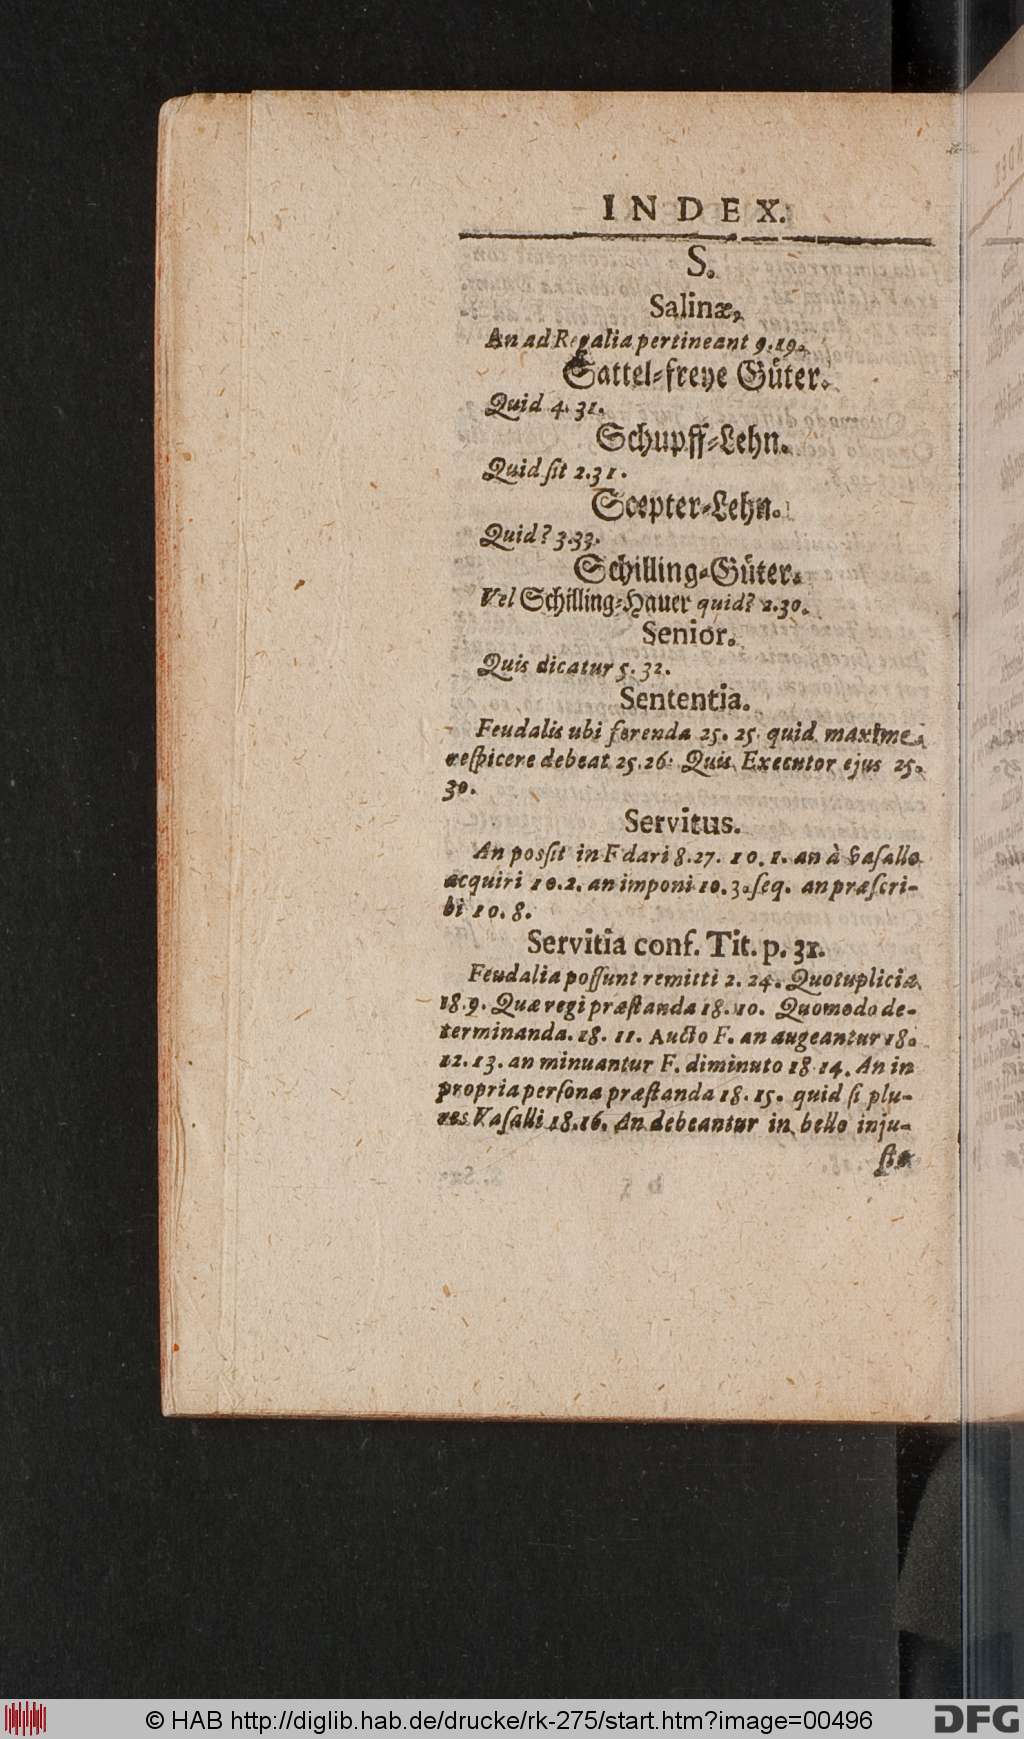 INDEX.
S.
Salinæ,
An ad Regalia pertineant 9.19.
Sattel-freye Güter.
Quid 4. 31.
Schupff-Lehn.
Quid ſit 2.31.
Scepter-Lehn.
Quid? 3.33.
Schilling-Güter.
Vel Schilling-Hauer quid? 2.30.
Senior.
Quis dicatur 5. 32.
Sententia.
Feudalis ubi ferenda 25. 25. quid maxime
reſpicere debeat 25.26. Quis Executor ejus 25.
30.
Servitus.
An posſit in F dari 8.27. 10. 1. an à vaſallo
acquiri 10.2. an imponi 10. 3. ſeq. an præſcri-
bi 10. 8.
Servitia conf. Tit. p. 31.
Feudalia poſſunt remitti 2. 24. Quotuplicia
18.9. Quæ regi præſtanda 18. 10. Quomodo de-
terminanda. 18. 11. Aucto F. an augeantur 18.
12. 13. an minuantur F. diminuto 18 14. An in
propria perſona præſtanda 18. 15. quid ſi plu-
res Vaſalli 18.16. An debeantur in bello inju-
ſto
© HAB http://diglib.hab.de/drucke/rk-275/start.htm?image=00496
DFG